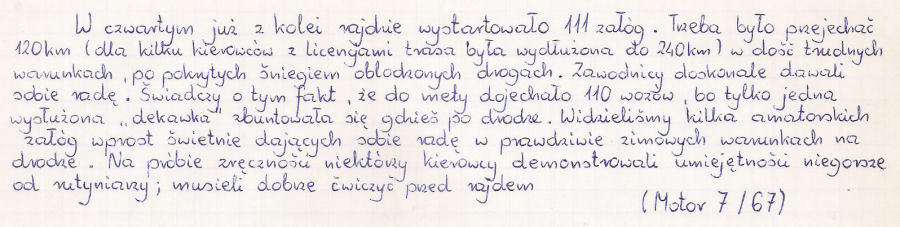 W czwartym już z kolei rajdzie wystartowało 111 załóg. Trzeba było przejechać
120km (dla kilku kierowców z licencjami trasa była wydłużona do 240km) w dość trudnych
warunkach, po pokrytych śniegiem oblodzonych drogach. Zawodnicy doskonale dawali
sobie radę. Świadczy o tym fakt, że do mety dojechało 110 wozów, bo tylko jedna
wysłużona „dekawka" zbuntowała się gdzieś po drodze. Widzieliśmy kilka amatorskich
załóg wprost świetnie dających sobie radę w prawdziwie zimowych warunkach na
drodze. Na próbie zręczności niektórzy kierowcy demonstrowali umiejętności niegorsze
od rutyniarzy; musieli dobrze ćwiczyć przed rajdem
(Motor 7/67)